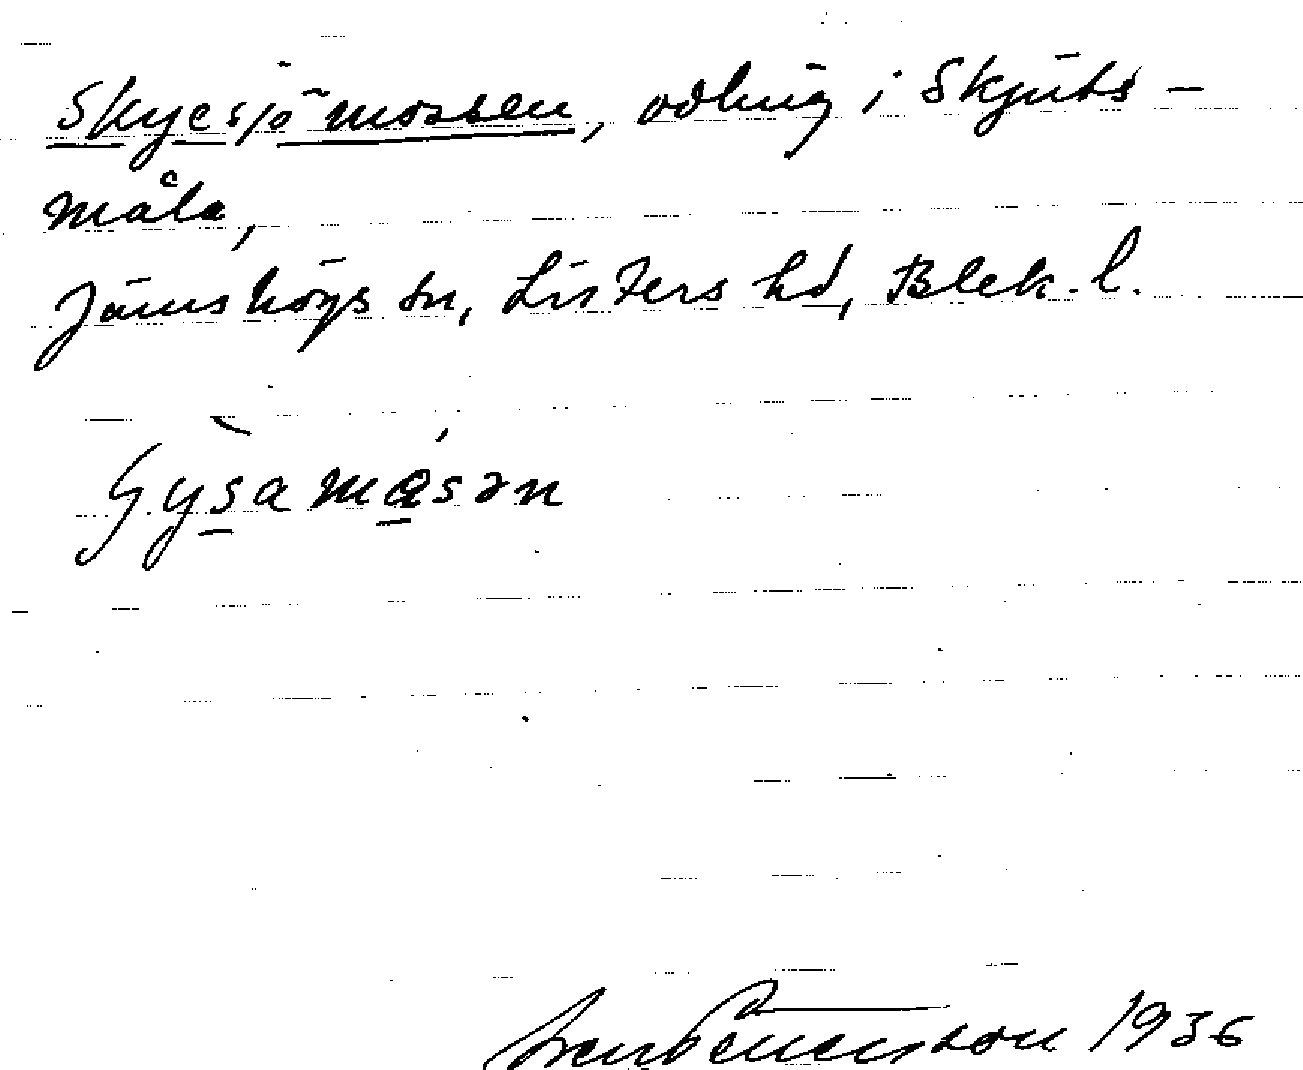 Skyesjömossen, odling i Skjuts-
måla,
Jämshögs sn, Listers hd, Blek. l.
1936